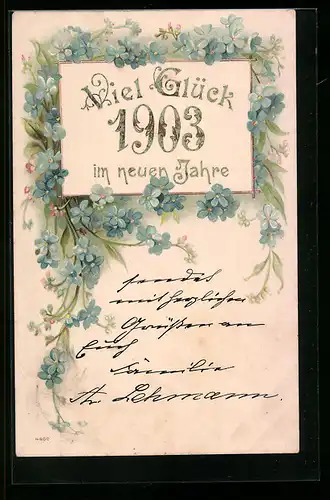 Viel Glück
1903
im neuen Jahre
sendet
mit herzlichen
Grüßen an
Euch
Familie
Lehmann.